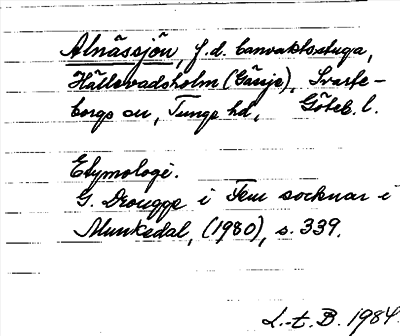 Alnässjön, f.d. banvaktsstuga,
Hällevadsholm (Gärje), Svarte-
borgs sn, Tunge hd, Göteb. l.
Etymologi.
G. Drougge i Fem socknar i
Munkedal, (1980), s. 339.
L.-t. B. 1984.